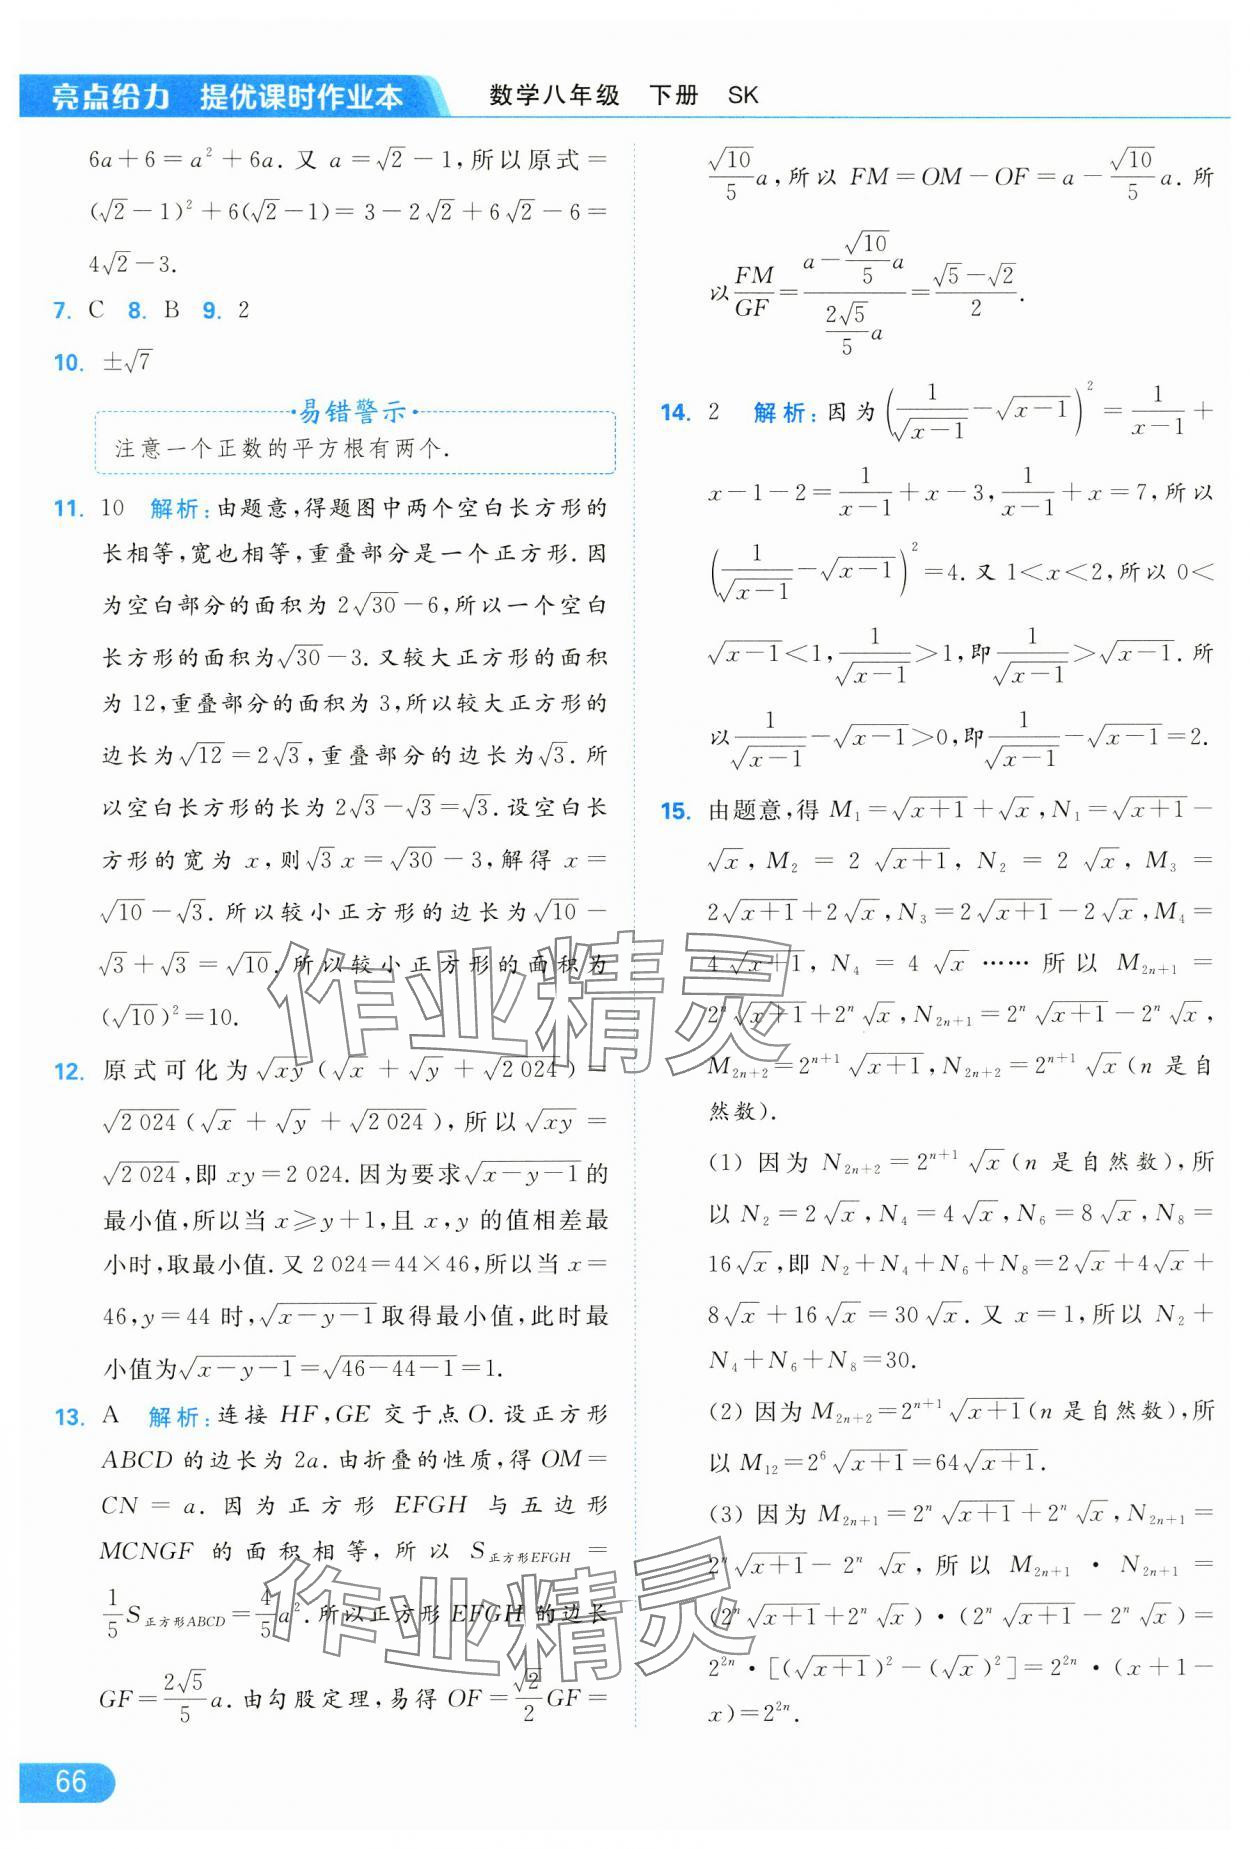 亮点给力 提优课时作业本 数学八年级 下册 SK
6a+6=a²+6a. 又 a=√2-1,所以原式=
(√2-1)²+6(√2-1)=3-2√2+6√2-6=
4√2-3.
7. C 8. B 9. 2
10. ±√7
·易错警示·
注意一个正数的平方根有两个.
11. 10 解析:由题意,得题图中两个空白长方形的
长相等,宽也相等,重叠部分是一个正方形.因
为空白部分的面积为 2√30-6,所以一个空白
长方形的面积为√30-3.又较大正方形的面积
为 12,重叠部分的面积为 3,所以较大正方形的
边长为√12=2√3,重叠部分的边长为√3.所
以空白长方形的长为 2√3-√3=√3.设空白长
方形的宽为 x,则√3x=√30-3,解得 x=
√10-√3.所以较小正方形的边长为√10-
√3+√3=√10.所以较小正方形的面积为
(√10)²=10.
12. 原式可化为√(xy)(√x+√y+√2 024)=
√2 024(√x+√y+√2 024),所以√(xy)=
√2 024,即 xy=2 024.因为要求√(x-y-1)的
最小值,所以当 x≥y+1,且 x,y 的值相差最
小时,取最小值.又 2 024=44×46,所以当 x=
46,y=44 时,√(x-y-1)取得最小值,此时最
小值为√(x-y-1)=√(46-44-1)=1.
13. A 解析:连接 HF,GE 交于点 O.设正方形
ABCD 的边长为 2a.由折叠的性质,得 OM=
CN=a.因为正方形 EFGH 与五边形
MCNGF 的面积相等,所以 S正方形EFGH=
1/5 S正方形ABCD=4/5 a².所以正方形 EFGH 的边长
GF=2√5/5 a.由勾股定理,易得 OF=√2/2 GF=
√10/5 a,所以 FM=OM-OF=a-√10/5 a.所
以 FM/GF=(a-√10/5 a)/(2√5/5 a)=(√5-√2)/2.
14. 2 解析:因为(1/√(x-1)-√(x-1))²=1/(x-1)+
x-1-2=1/(x-1)+x-3,1/(x-1)+x=7,所以
(1/√(x-1)-√(x-1))²=4.又 1<x<2,所以 0<
√(x-1)<1,1/√(x-1)>1,即1/√(x-1)>√(x-1).所
以1/√(x-1)-√(x-1)>0,即1/√(x-1)-√(x-1)=2.
15. 由题意,得 M₁=√(x+1)+√x,N₁=√(x+1)-
√x,M₂=2√(x+1),N₂=2√x,M₃=
2√(x+1)+2√x,N₃=2√(x+1)-2√x,M₄=
4√(x+1),N₄=4√x……所以 M₂ₙ₊₁=
2ⁿ√(x+1)+2ⁿ√x,N₂ₙ₊₁=2ⁿ√(x+1)-2ⁿ√x,
M₂ₙ₊₂=2ⁿ⁺¹√(x+1),N₂ₙ₊₂=2ⁿ⁺¹√x(n 是自
然数).
(1) 因为 N₂ₙ₊₂=2ⁿ⁺¹√x(n 是自然数),所
以 N₂=2√x,N₄=4√x,N₆=8√x,N₈=
16√x,即 N₂+N₄+N₆+N₈=2√x+4√x+
8√x+16√x=30√x.又 x=1,所以 N₂+
N₄+N₆+N₈=30.
(2) 因为 M₂ₙ₊₂=2ⁿ⁺¹√(x+1)(n 是自然数),所
以 M₁₂=2⁶√(x+1)=64√(x+1).
(3) 因为 M₂ₙ₊₁=2ⁿ√(x+1)+2ⁿ√x,N₂ₙ₊₁=
2ⁿ√(x+1)-2ⁿ√x,所以 M₂ₙ₊₁·N₂ₙ₊₁=
(2ⁿ√(x+1)+2ⁿ√x)·(2ⁿ√(x+1)-2ⁿ√x)=
2²ⁿ·[(√(x+1))²-(√x)²]=2²ⁿ·(x+1-
x)=2²ⁿ.
作业精灵
作业精灵
66